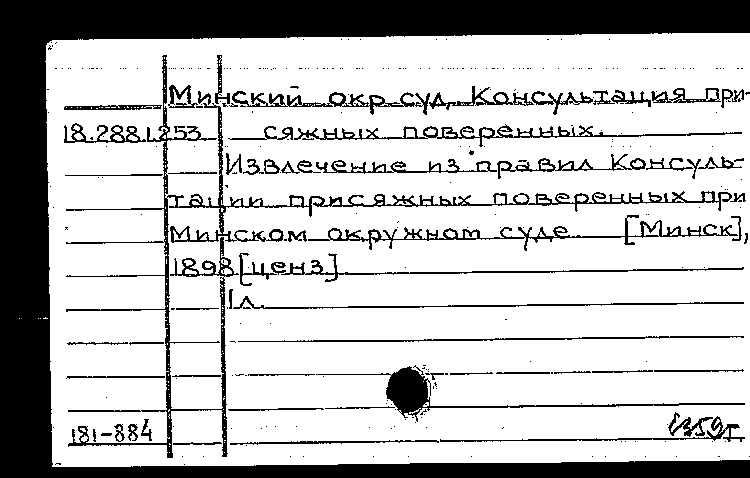 Минский окр суд. Консультация при-
18.288.1.253 сяжных поверенных.
Извлечение из правил Консуль-
тации присяжных поверенных при
Минском окружном суде. [Минск],
1898 [ценз]
1л.
181-884